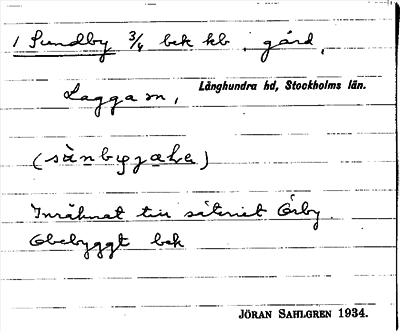 1 Sundby 3/4 bek kb gård,
Lagga sn, Långhundra hd, Stockholms län.
(sànbyɟaka)
Inräknat till säteriet Örby.
Obebyggt bek
JÖRAN SAHLGREN 1934.